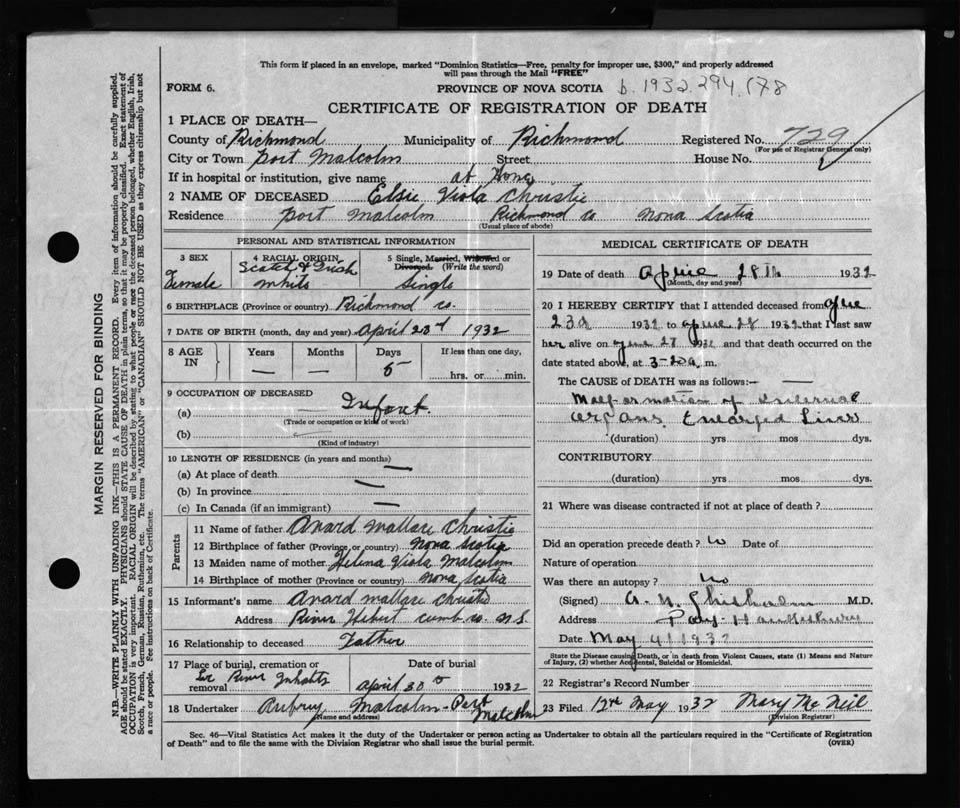 This form if placed in an envelope, marked "Dominion Statistics—Free, penalty for improper use, $300," and properly addressed
will pass through the Mail "FREE"
FORM 6.
PROVINCE OF NOVA SCOTIA b. 1932.294.178
CERTIFICATE OF REGISTRATION OF DEATH
1 PLACE OF DEATH—
County of Richmond Municipality of Richmond Registered No. 729
(For use of Registrar General only)
City or Town Port Malcolm Street House No.
If in hospital or institution, give name at Home
2 NAME OF DECEASED Elsie Viola Christie
Residence Port Malcolm Richmond Co Nova Scotia
(Usual place of abode)
PERSONAL AND STATISTICAL INFORMATION
3 SEX
Female
4 RACIAL ORIGIN
Scotch & Irish
White
5 Single, Married, Widowed or
Divorced. (Write the word)
Single
6 BIRTHPLACE (Province or country) Richmond Co.
7 DATE OF BIRTH (month, day and year) April 23d 1932
8 AGE
IN
Years
—
Months
—
Days
5
If less than one day,
hrs. or min.
9 OCCUPATION OF DECEASED
(a) Infant
(Trade or occupation or kind of work)
(b)
(Kind of industry)
10 LENGTH OF RESIDENCE (in years and months)
(a) At place of death —
(b) In province —
(c) In Canada (if an immigrant) —
Parents
11 Name of father Avard Wallace Christie
12 Birthplace of father (Province or country) Nova Scotia
13 Maiden name of mother Helena Viola Malcolm
14 Birthplace of mother (Province or country) Nova Scotia
15 Informant's name Avard Wallace Christie
Address River Hebert Cumb. Co. N.S.
16 Relationship to deceased Father
17 Place of burial, cremation or
removal
River Inhabits
Date of burial
April 30 1932
18 Undertaker Aubrey Malcolm - Port
Malcolm
(Name and address)
MEDICAL CERTIFICATE OF DEATH
19 Date of death April 28th 1932
(Month, day and year)
20 I HEREBY CERTIFY that I attended deceased from
23d 1932 to April 28 1932 that I last saw
her alive on 28 1932 and that death occurred on the
date stated above, at 3-20 a. m.
The CAUSE OF DEATH was as follows:—
Malformation of Internal
organs. Enlarged Liver
(duration) yrs mos dys.
CONTRIBUTORY
(duration) yrs mos dys.
21 Where was disease contracted if not at place of death?
Did an operation precede death? No Date of
Nature of operation
Was there an autopsy? No
(Signed) M.D.
Address Hawkesbury
Date May 4 1932
State the Disease causing Death, or in death from Violent Causes, state (1) Means and
Nature of Injury, (2) whether Accidental, Suicidal or Homicidal.
22 Registrar's Record Number
23 Filed 12th May 1932 Mary McNeil
(Division Registrar)
Sec. 46—Vital Statistics Act makes it the duty of the Undertaker or person acting as Undertaker to obtain all the particulars required in the "Certificate of Registration
of Death" and to file the same with the Division Registrar who shall issue the burial permit.
(OVER)
MARGIN RESERVED FOR BINDING
N.B.—WRITE PLAINLY WITH UNFADING INK—THIS IS A PERMANENT RECORD. Every item of information should be carefully supplied.
AGE should be stated EXACTLY. PHYSICIANS should STATE CAUSE OF DEATH in plain terms, so that it may be properly classified. Exact statement of
OCCUPATION is very important. RACIAL ORIGIN will be described by stating to what people or race the deceased person belonged, whether English, Irish,
Scotch, French, German, Russian, Ruthenian, etc. The terms "AMERICAN" or "CANADIAN" SHOULD NOT BE USED as they express citizenship but not
a race or people. See instructions on back of Certificate.